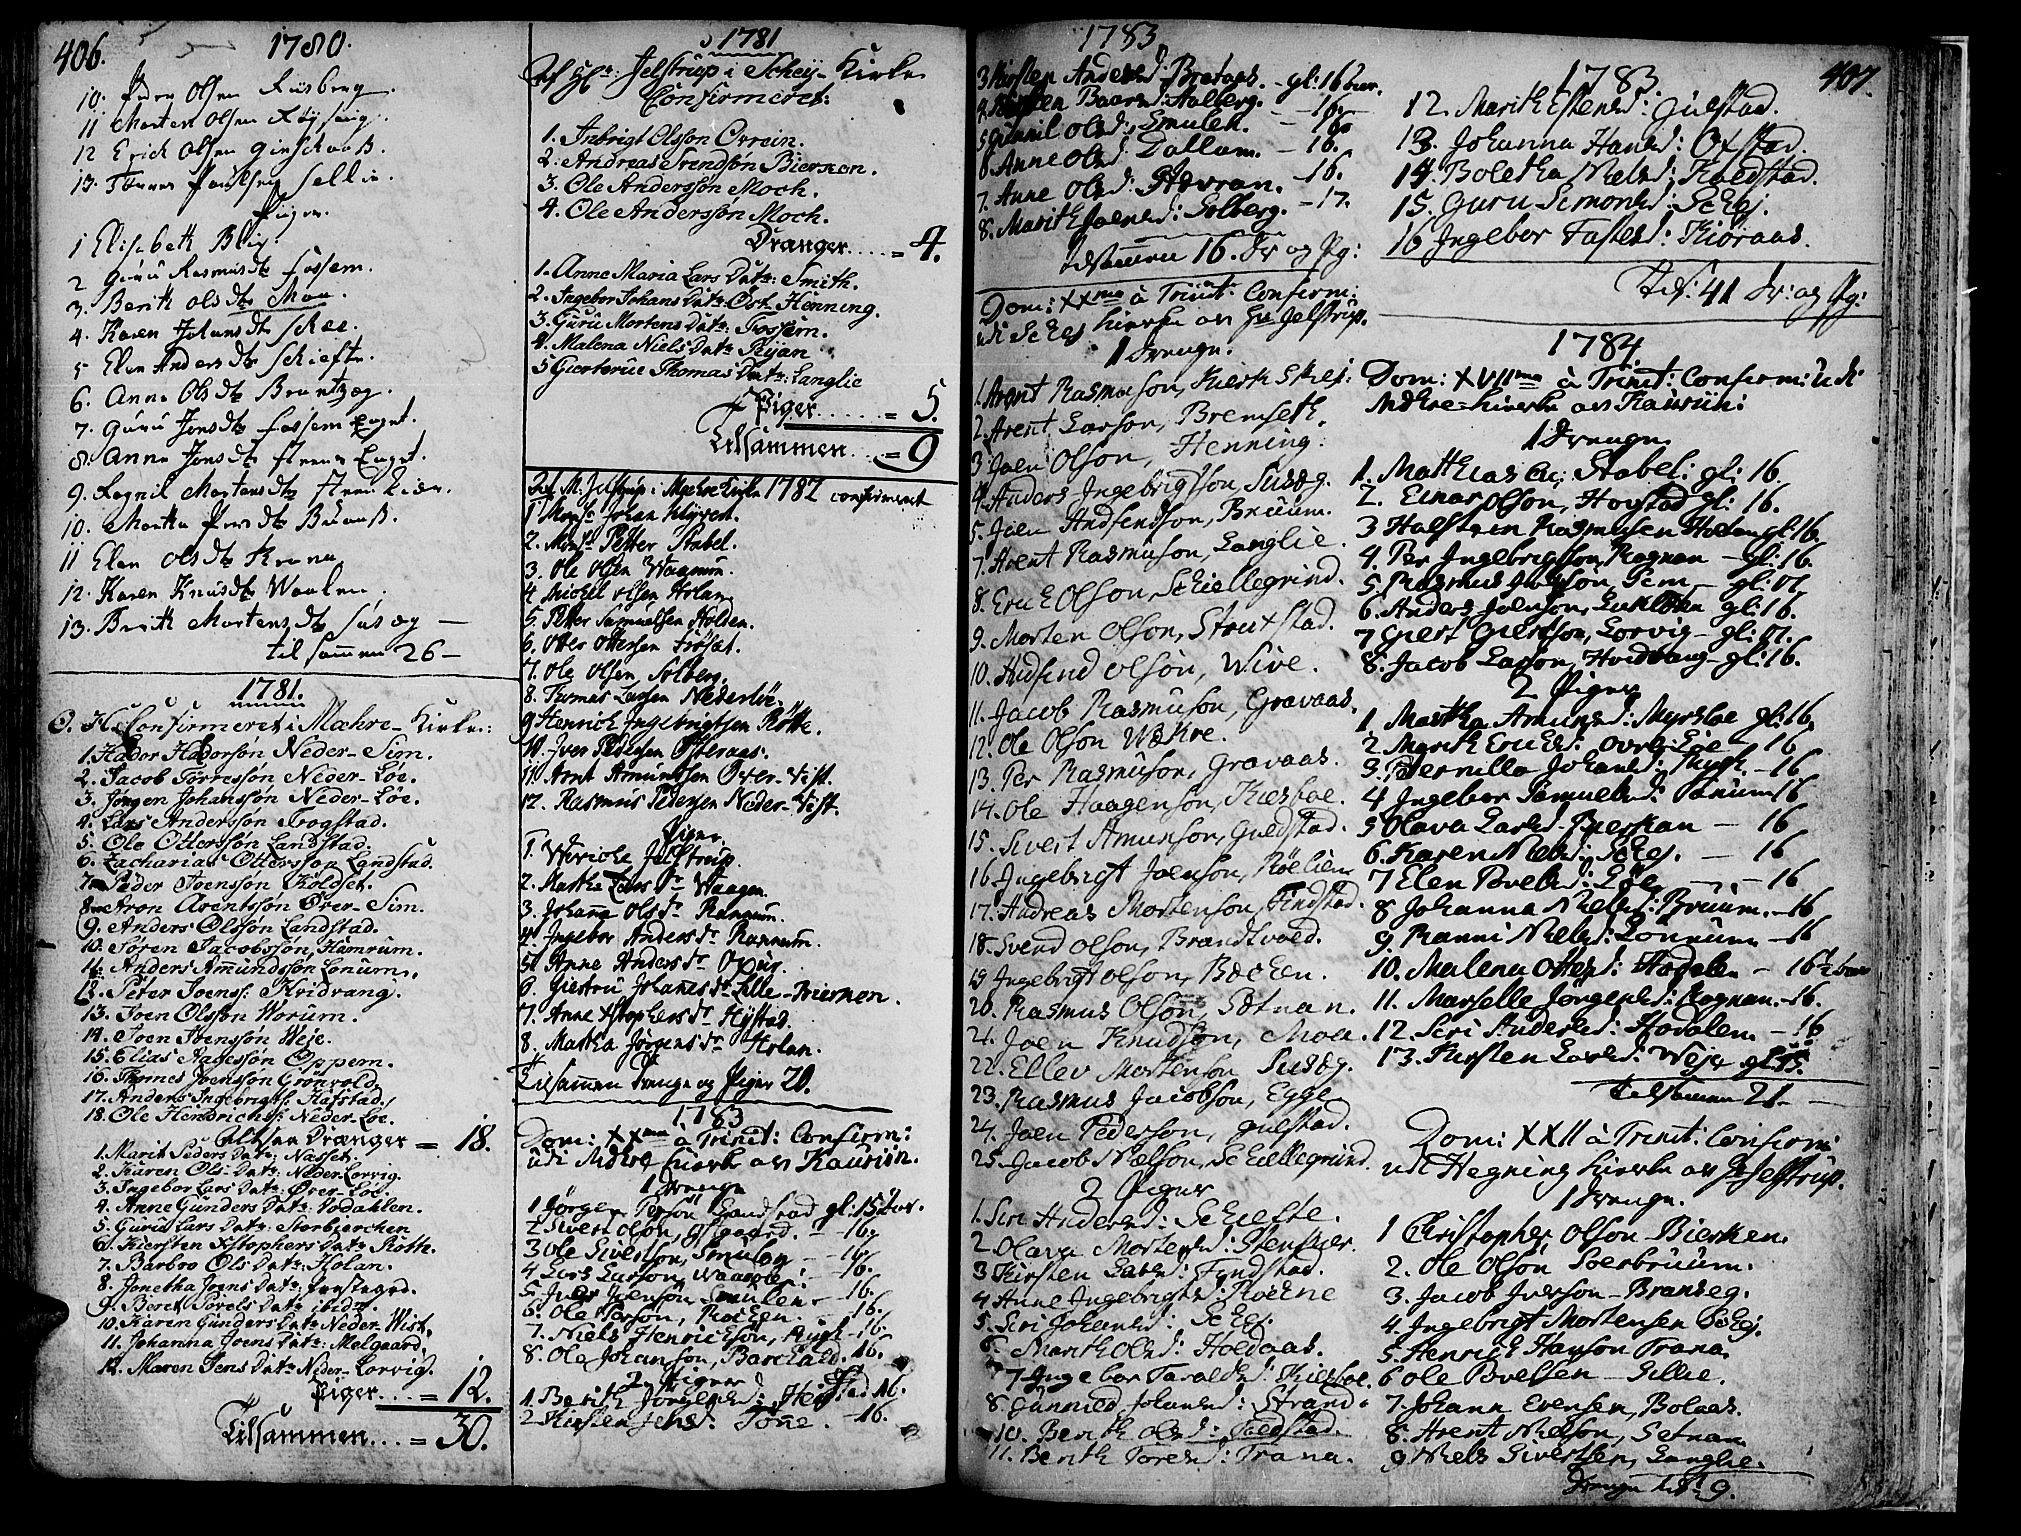 406.
1780.
10. Peder Olsen Riisberg.
11 Morten Olsen
12 Erich Olsen
13. Paulsen Sellie.
Piger.
1 Elisabeth Blix.
2 Guru Rasmusdtr Fossem.
3. Berith Olsdtr Moe.
4. Karen Johansdtr Schee.
5 Elen Andersdtr Schiefte.
6. Anne Olsdtr
7. Guru Jonsdtr Fossem Eyet.
8. Anne Jonsdtr
9. Rognil Mortensdtr
10. Martha
11 Elen Olsdtr
12. Karen Knudsdtr Waalen.
13. Berith Mortensdtr Susæg —
til sammen 26 —
1781.
Confirmeret i Mæhre-Kirke:
1. Hador Hadorsøn Neder-Sim.
2. Jacob Torressøn Neder-Løe.
3. Jørgen Johansøn Neder-Løe.
4. Lars Andersøn Trogstad.
5. Ole Ottersøn Landstad.
6. Zacharias Ottersøn Landstad.
7. Peder Joensøn Koldset.
8. Aron Arentsøn Över-Sim.
9. Anders Olsøn Landstad.
10. Søren Jacobsøn, Hamrum.
11. Anders Amundssøn Lorum.
12. Peter Joenss: Hvidvang.
13. Joen Olssøn Worum.
14. Joen Joenssøn Weje.
15. Elias Aagessøn Oppem.
16. Thomes Joenssøn Grönvold.
17. Anders Ingebrigts: Hafstad.
18. Ole Hendrichs: Neder-Løe.
Drænger = 18.
1. Marit Peders Datr: Nasset.
2. Karen Ols Datr: Neder-Lorvig.
3. Ingebor Lars Datr: Över-Løe.
4. Anne Gunders Datr: Vodahlen.
5. Guru Lars Datr: Morbierchen
6. Kiersten Xstophers Datr: Röth.
7. Barbro Ols Datr: Holan.
8. Jonetha Joens Datr:
9. Berit Povels Datr: ibidm.
10. Karen Gunders Datr: Neder Wist.
11. Johanna Joens Datr: Melgaard.
12. Maren Jens Datr: Neder-Lorvig.
Piger... = 12.
Tilsammen.... = 30.
1781
Af Hr: Jelstrup i Schey-Kirke
Confirmeret:
1. Inbrigt Olsson Orrein.
2. Andreas Svendsøn Bierken.
3. Ole Anderssøn Moch.
4. Ole Anderssøn Moch.
Dranger.... = 4.
1. Anne Maria Lars Datr: Smith.
2. Ingebor Johans Datr: Öst Henning.
3. Guru Mortens Datr: Fossem.
4. Malena Niels Datr: Ryan
5 Giertrue Thomas Datr: Langlie
Piger...... = 5.
Tilsammen... = 9
Af M. Jelstrup i Mæhre Kirke 1782 confirmeret
1 Mons: Johan
2. Mons: Petter Stabel.
3. Ole Olsen Wammen.
4. Michel Olsen Holan.
5. Petter Samuelsen Holden.
6. Otter Ottersen Frösat.
7. Ole Olsen, Solberg.
8. Thomas Larsen Nederløe.
9 Henrich Ingebrigtsen Rötte.
10. Iver Pedersen Österaas.
11 Arnt Amundsen Over-Vist.
12. Rasmus Pedersen Neder-Vist.
Piger
1. Wiviche Jelstrup.
2. Martha Lars dr Waagen.
3. Johana Ols dr Rannum.
4. Ingebor Anders dr Rannum.
5. Anne Anders dr Opur.
6. Giertru Johanes dr Lille-Bierken.
7. Anne Xstophers dr Hystad.
8. Martha Jørgens dr Holan.
Tilsamen Drenge og Piger 20.
1783
Dom: XXma à Trinit: Confirm:
udi Mæhre Kierke av Kaurin.
1 Drenge
1 Jörgen Persön Landstad gl: 15 Aar.
2. Sivert Olson, – 16.
3 Ole Sivertson, Smulan – 16.
4 Lars Larson, – 16.
5. Joenson Smulan – 16.
6. Ole Person, Röeken – 16.
7. Niels Henrickson, – 16.
8. Ole Johanson, 16.
2 Piger
1. Berith Jörgensd: 16.
2 Kirsten Jensd: Töne. – 16.
1783
3 Kirsten Andersd: Brataas. – gl: 16 aar.
4. Kirsten Baarsd: Aalberg. – 16.
5 Gunnil Olsd: Smulan. – 16.
6. Anne Olsd: Dallum. – 16.
7. Anne Olsd: Hovran. – 16.
8. Marith Joensd: Solberg. – 17.
tilsamen 16. Dr og Pg:
Dom: XXma à Trinit: Confirm:
udi Schej Kierke av Hr Jelstrup.
1 Drenge.
1. Arent Rasmuson,
2. Arent Larson, Bremseth.
3 Joen Olson, Henning.
4. Anders Ingebrigtson Susæg.
5. Joen Andfendson, Bruum.
7. Arent Rasmuson Langlie.
8. Eric Olson, Schiellegrind.
9. Morten Olson, Straxstad.
10. Andfend Olson, Wive.
11. Jacob Rasmuson, Gravaas.
12. Ole Olson Wekre.
13. Per Rasmuson, Gravaas.
14. Ole Haagenson, Kiesboe.
15. Sivert Amunson, Guldstad.
16 Ingebrigt Joenson, Röelien
17. Andreas Mortenson, Findstad.
18. Svend Olson, Brandtvold.
19 Ingebrigt Olson, Bæcken.
20. Rasmus Olson, Sotnan.
21. Joen Knudson, Moa.
22. Ellev Mortenson Susæg.
23. Rasmus Jacobson, Egge.
24. Joen Pederson, Gulstad.
25. Jacob Nielson, Schiellegrind.
2 Piger
1. Siri Andersd: Schiefte.
2. Olava Mortensd: Stenkier.
3 Kirsten Larsd: Findstad.
4 Anne Ingebrigtsd:
5. Siri Johansd: Schej.
6. Marith Olsd: Holdaas.
7. Ingebor Taraldsd: Kiesboe.
8. Gunnild Johansd: Strand.
10. Berith Olsd: Foldstad.
11. Berith Toresd: Trana.
407.
1783
12. Marith Estensd: Gulstad.
13. Johanna Hansd: Oxstad.
14. Boletha Nielsd: Koldstad.
15. Guru Simonsd: Schej.
16 Ingebor Fastesd: Kioraas.
Tils: 41 Dr: og Pg:
1784.
Dom: XVIIma à Trinit: Confirm: udi
Mæhre-Kierke av Kaurin:
1 Drenge.
1. Matthias Stabel: gl: 16.
2. Einar Olson, Hovstad gl: 16.
3 Halsten Rasmusen Holan gl: 16.
4. Per Ingebrigtson Rognan – gl: 16.
5 Rasmus Sem – gl: 17
6. Anders Joenson, gl: 16.
7 Giert Giertson, Lorvig – gl: 17.
8. Jacob Larson, Hvidvang – gl: 16.
2 Piger
1. Martha Amunsd: Myrsloe gl: 16.
2. Marith Ericksd: Overløe – 16
3. Pernilla Johansd: – 16
4 Ingebor Samuelsd: 16
5 Olava Larsd. Bierkan – 16
6. Karen Nielsd: Schej. – 16
7 Elen Povelsd: Løe, – 16
8 Johanna Nielsd: Bruum. – 16
9. Ranni Nielsd: Lorum – 16
10. Malena Ottersd: Hodalen – 16 1/2 aar
11. Marselle Jörgensd: Rognan. – 16.
12. Siri Andersd: Hodalen – 16
13. Kirsten Larsd: Weje gl: 15.
tilsamen 21. –
Dom: XXII à Trinit: Confirm:
udi Hegning Kierke av Hr Jelstrup.
1 Drenge.
1 Christopher Olson Bierken.
2. Ole Olson Soerbruum.
3. Jacob Iverson – Branseg.
4. Ingebrigt Mortensen Schej.
5. Henrich Hanson Trana.
6 Ole Povelsen – Sillie.
7. Johann Evensen, Bolaas.
8. Arent Nielson, Setnan.
9 Niels Sivertsen, Langlie.
Drenge tils: 9.